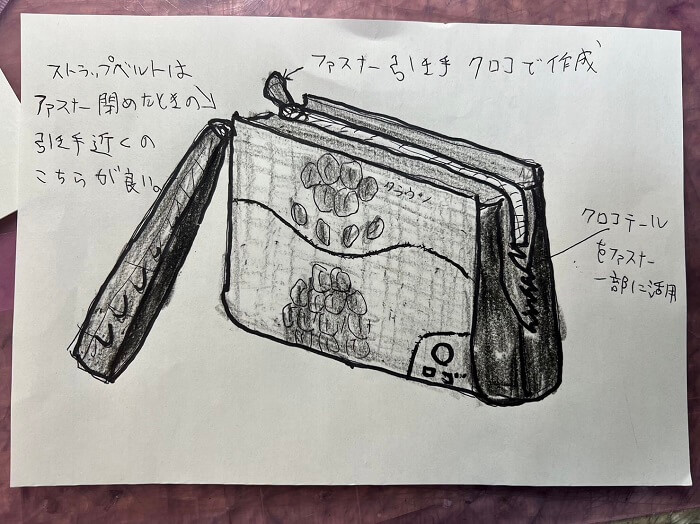 ストラップベルトは
ファスナー閉めたときの
引き手近くの
こちらが良い。
ファスナー引き手 クロコで作成
クラウン
クロコテール
をファスナー
一部に活用
ロゴ